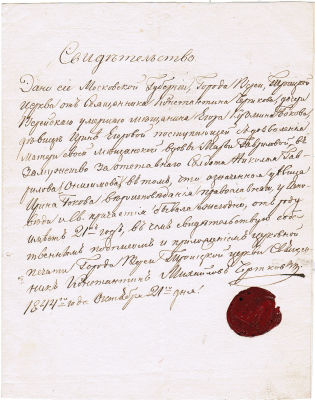 Свидѣтельство
Дано сіе Московской Губерніи, Города Вереи, Троицкой
Церкви отъ Священника Константина Чернкова, дочери
Верейскаго умершаго мѣщанина Егора Кузмина Бокова,
дѣвицѣ Иринѣ Егоровой поступающей съ дозволенія
Матери своей мѣщанской вдовы Марьи Гавриловой, въ
Замужество за отставнаго Солдата Николая Гав
рилова Онисимова, въ томъ что означенная дѣвица
Ирина Бокова вѣроисповѣданія православнаго, у Испо
вѣди и Св. причастія бывала ежегодно, отъ роду
имѣетъ 21й годъ, въ чемъ свидѣтельствую соб
ственнымъ подписомъ и приложеніемъ церковной
печати, Города Вереи Троицкой церкви Священ
никъ Константинъ Михайловъ
1844го года Октября 21го дня.